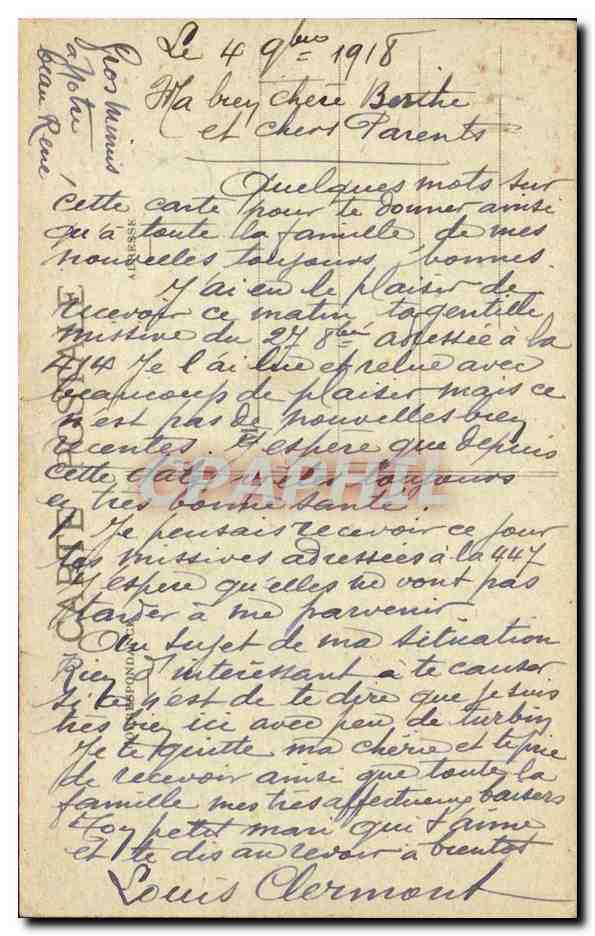 Le 4 9bre 1918
Ma bien chère Berthe
et chers Parents
Quelques mots sur
cette carte pour te donner ainsi
qu'à toute la famille, de mes
nouvelles toujours bonnes.
J'ai eu le plaisir de
recevoir ce matin ta gentille
missive du 27 8bre adressée à la
414 Je l'ai lue et relue avec
beaucoup de plaisir mais ce
n'est pas de nouvelles bien
récentes. J'espère que depuis
cette date êtes toujours
en très bonne santé.
Je pensais recevoir ce jour
tes missives adressées à la 447
J'espère qu'elles ne vont pas
tarder à me parvenir
Au sujet de ma situation
Rien d'intéressant à te causer
si ce n'est de te dire que je suis
très bien ici avec peu de turbin
Je te quitte ma chérie et te prie
de recevoir ainsi que toute la
famille mes très affectueux baisers
Ton petit mari qui t'aime
et te dis au revoir à bientôt
Louis Clermont
Gros mimis
à notre
beau René
CARTE POSTALE
CORRESPONDANCE
ADRESSE
CPAPHIL